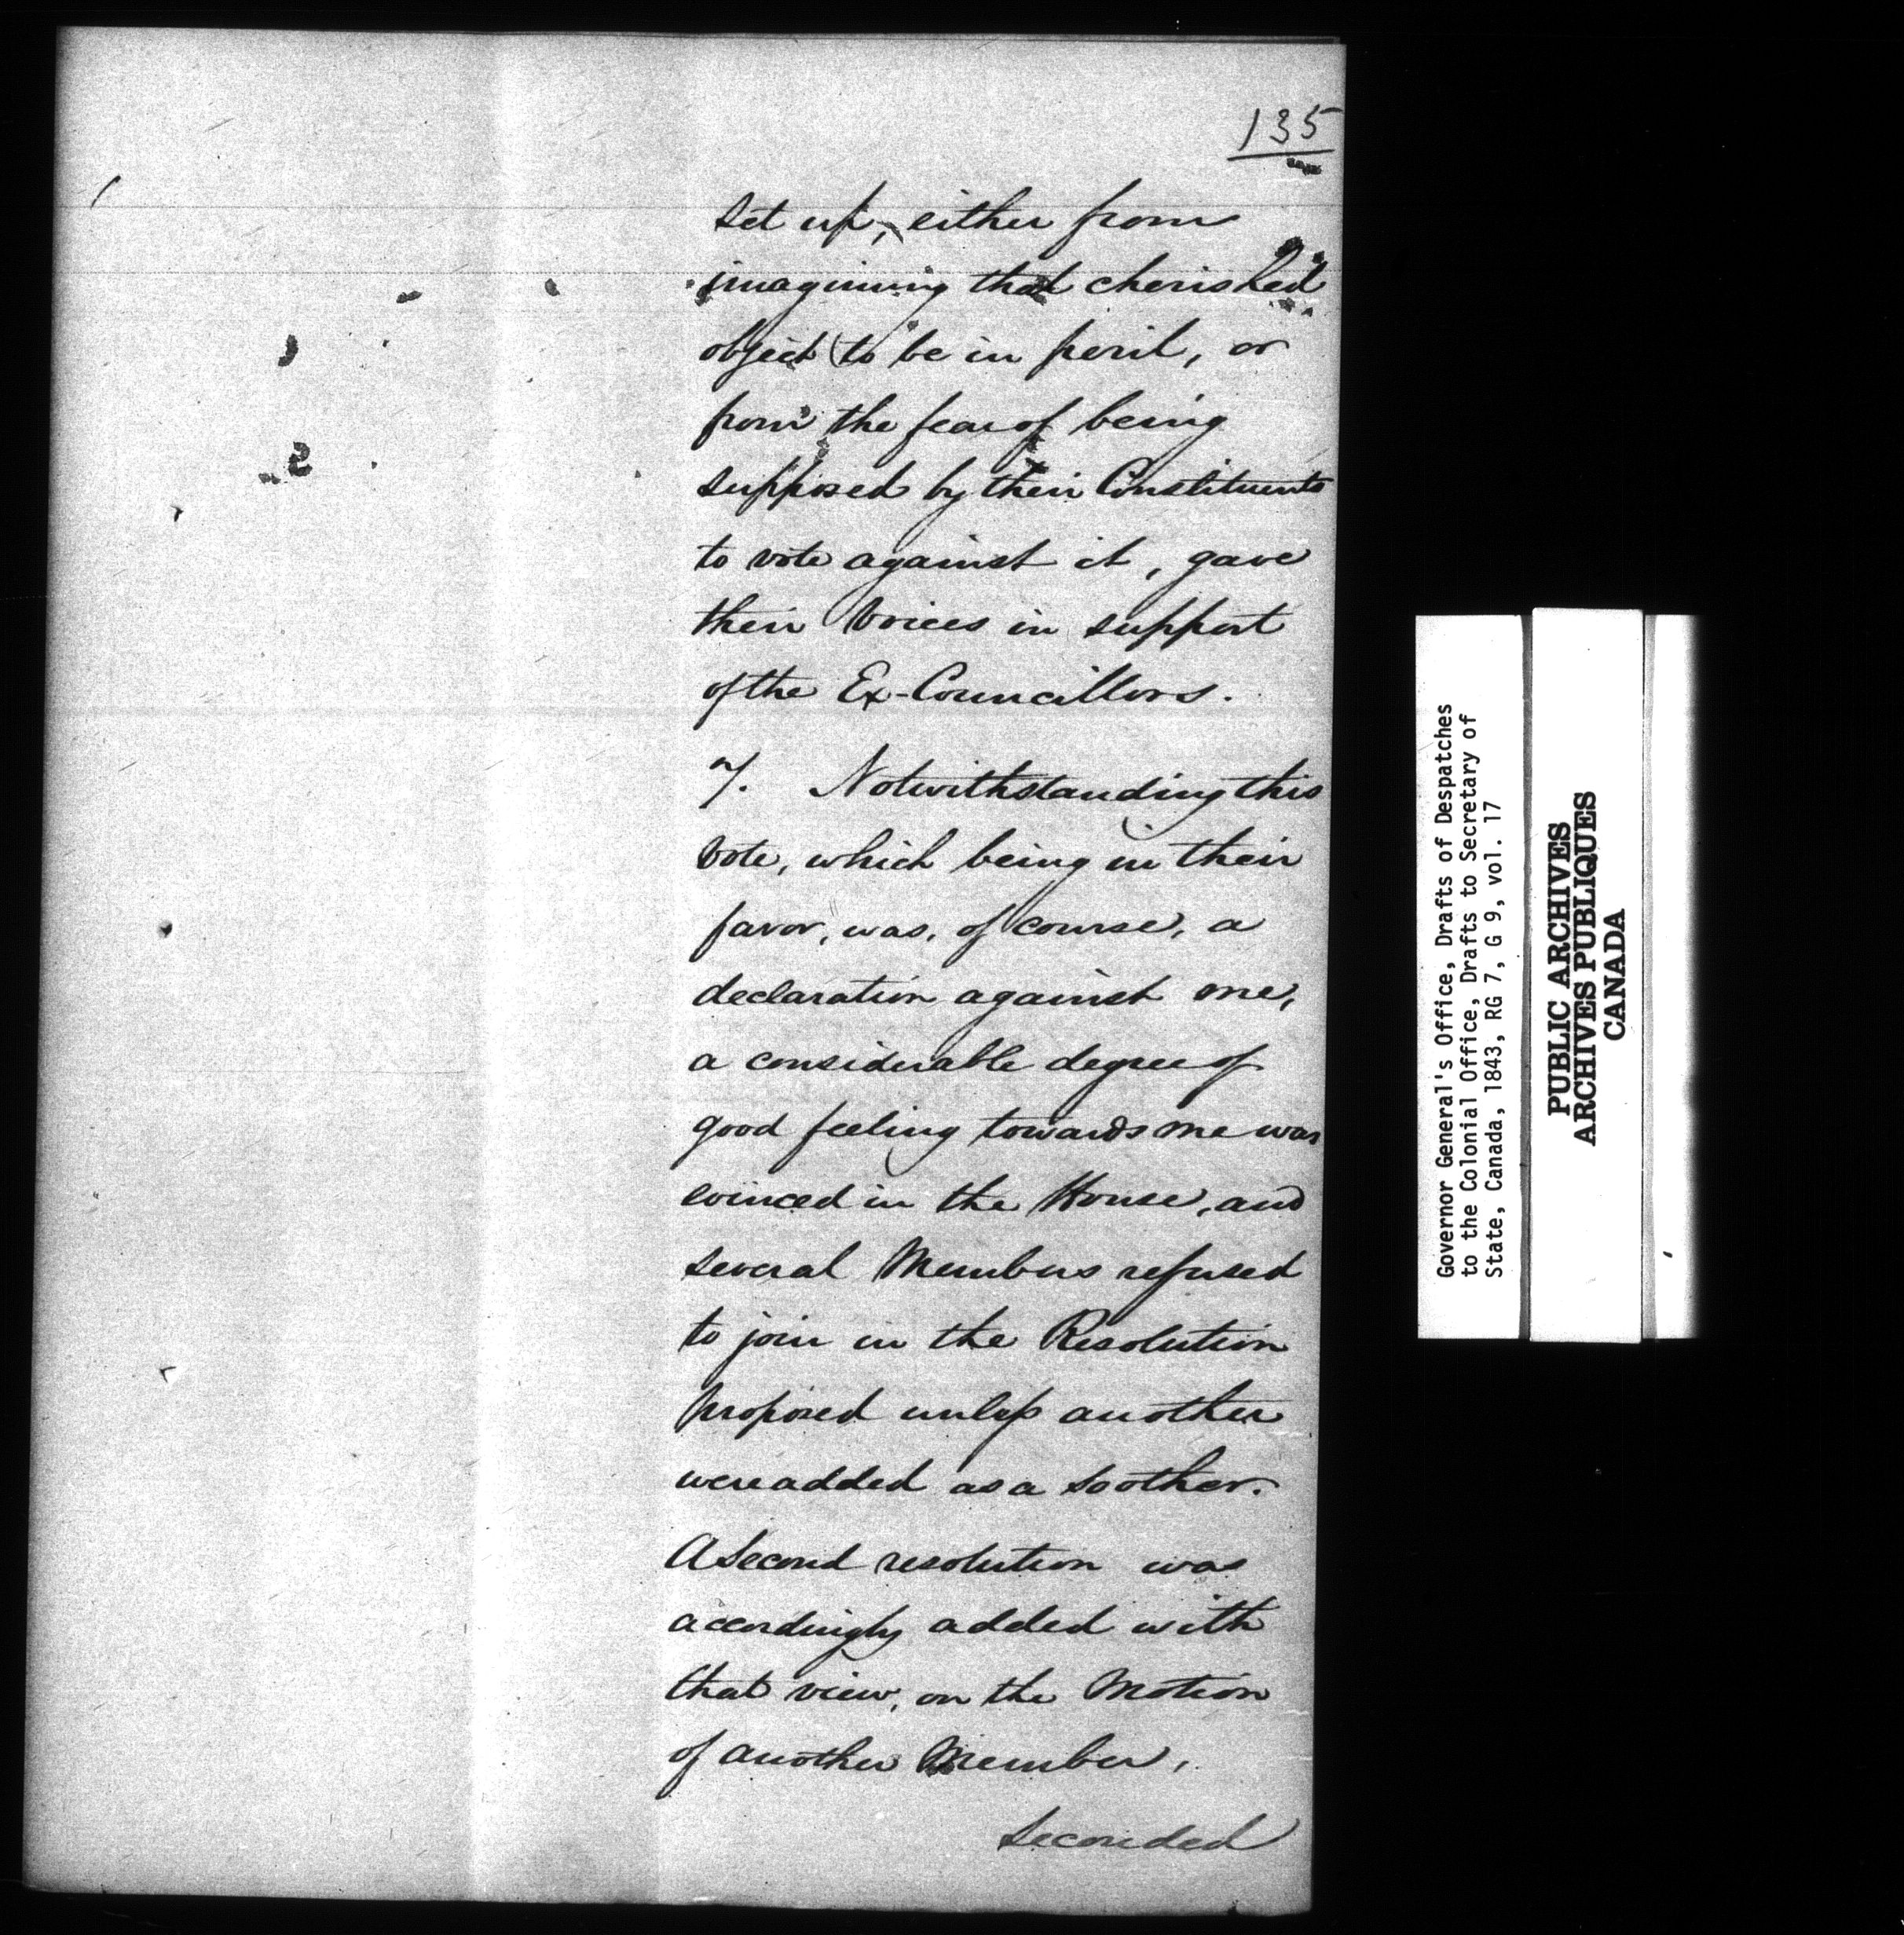 135
set up, either from
imagining that cherished
object to be in peril, or
from the fear of being
supposed by their Constituents
to vote against it, gave
their Voices in support
of the Ex-Councillors.
7. Notwithstanding this
Vote, which being in their
favor, was, of course, a
declaration against me,
a considerable degree of
good feeling towards me was
evinced in the House, and
several Members refused
to join in the Resolution
proposed unless another
were added as a Soother.
A Second resolution was
accordingly added with
that view, on the Motion
of another Member,
Seconded
Governor General's Office, Drafts of Despatches
to the Colonial Office, Drafts to Secretary of
State, Canada, 1843, RG 7, G 9, vol. 17
PUBLIC ARCHIVES
ARCHIVES PUBLIQUES
CANADA